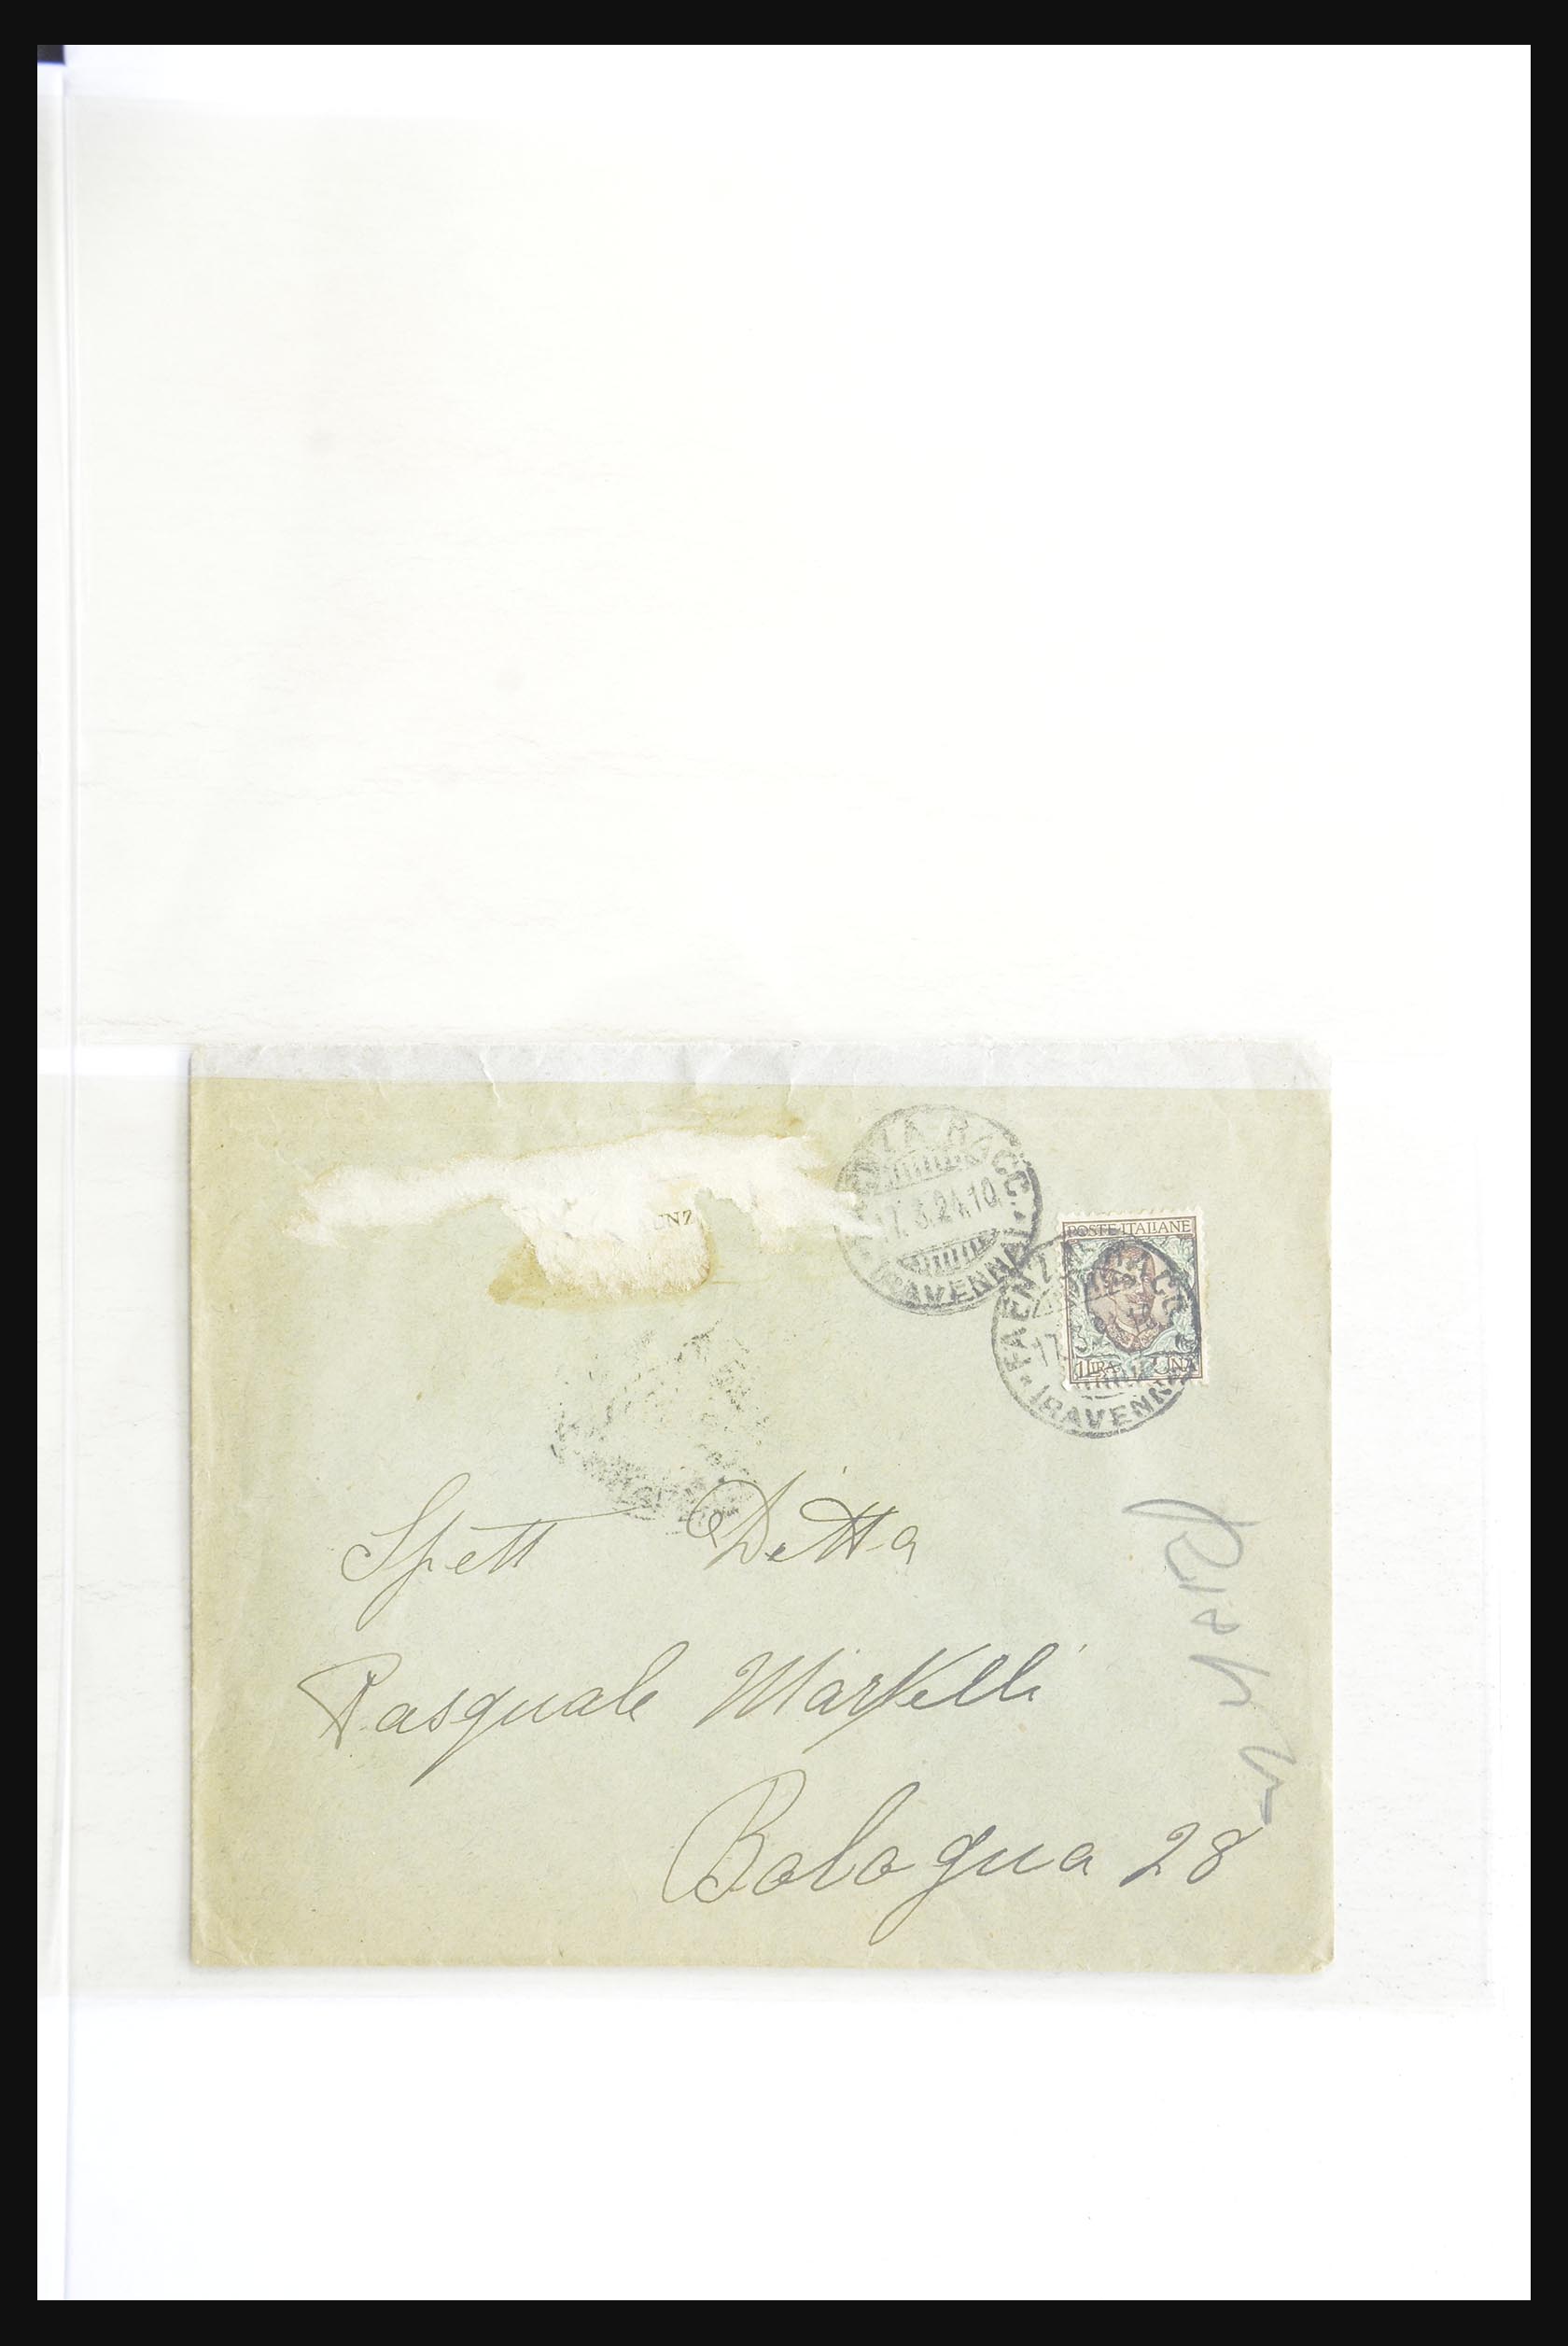 UNZ
FAENZA RACC.
17.3.24.10
(RAVENNA)
POSTE ITALIANE
1 LIRA UNA
FAENZA RACC.
17.3
(RAVENNA)
Spett Ditta
Pasquale
Bologna 28